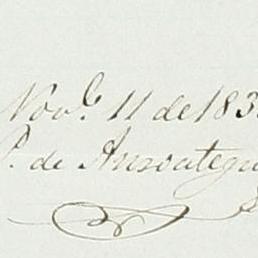 Novᵉ. 11 de 183
P. de Ansoategu